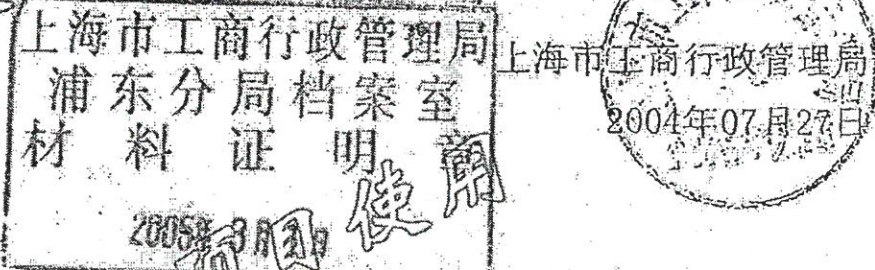 上海市工商行政管理局
浦东分局档案室
材料证明章
使用
上海市工商行政管理局
2004年07月27日